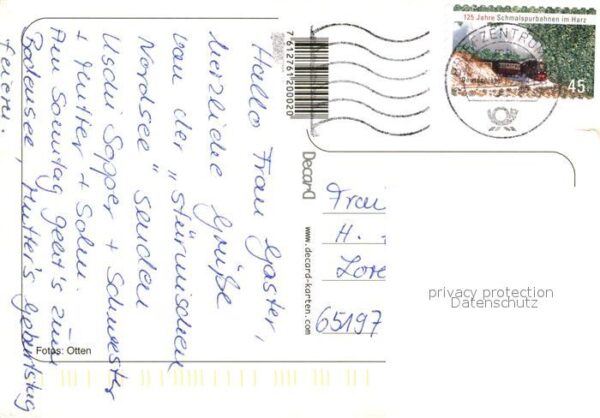 Hallo Frau Gaster,
herzliche Grüße
von der „stürmischen
Nordsee" senden
Uschi Sopper + Schwester
+ Mutter + Sohn.
Am Sonntag geht's zum
Bodensee, Mutter's Geburtstag
feiern.
Fotos: Otten
7612761200020
Decard
www.decard-karten.com
125 Jahre Schmalspurbahnen im Harz
45
ZENTRUM
Frau
H.
Lore
65197
privacy protection
Datenschutz